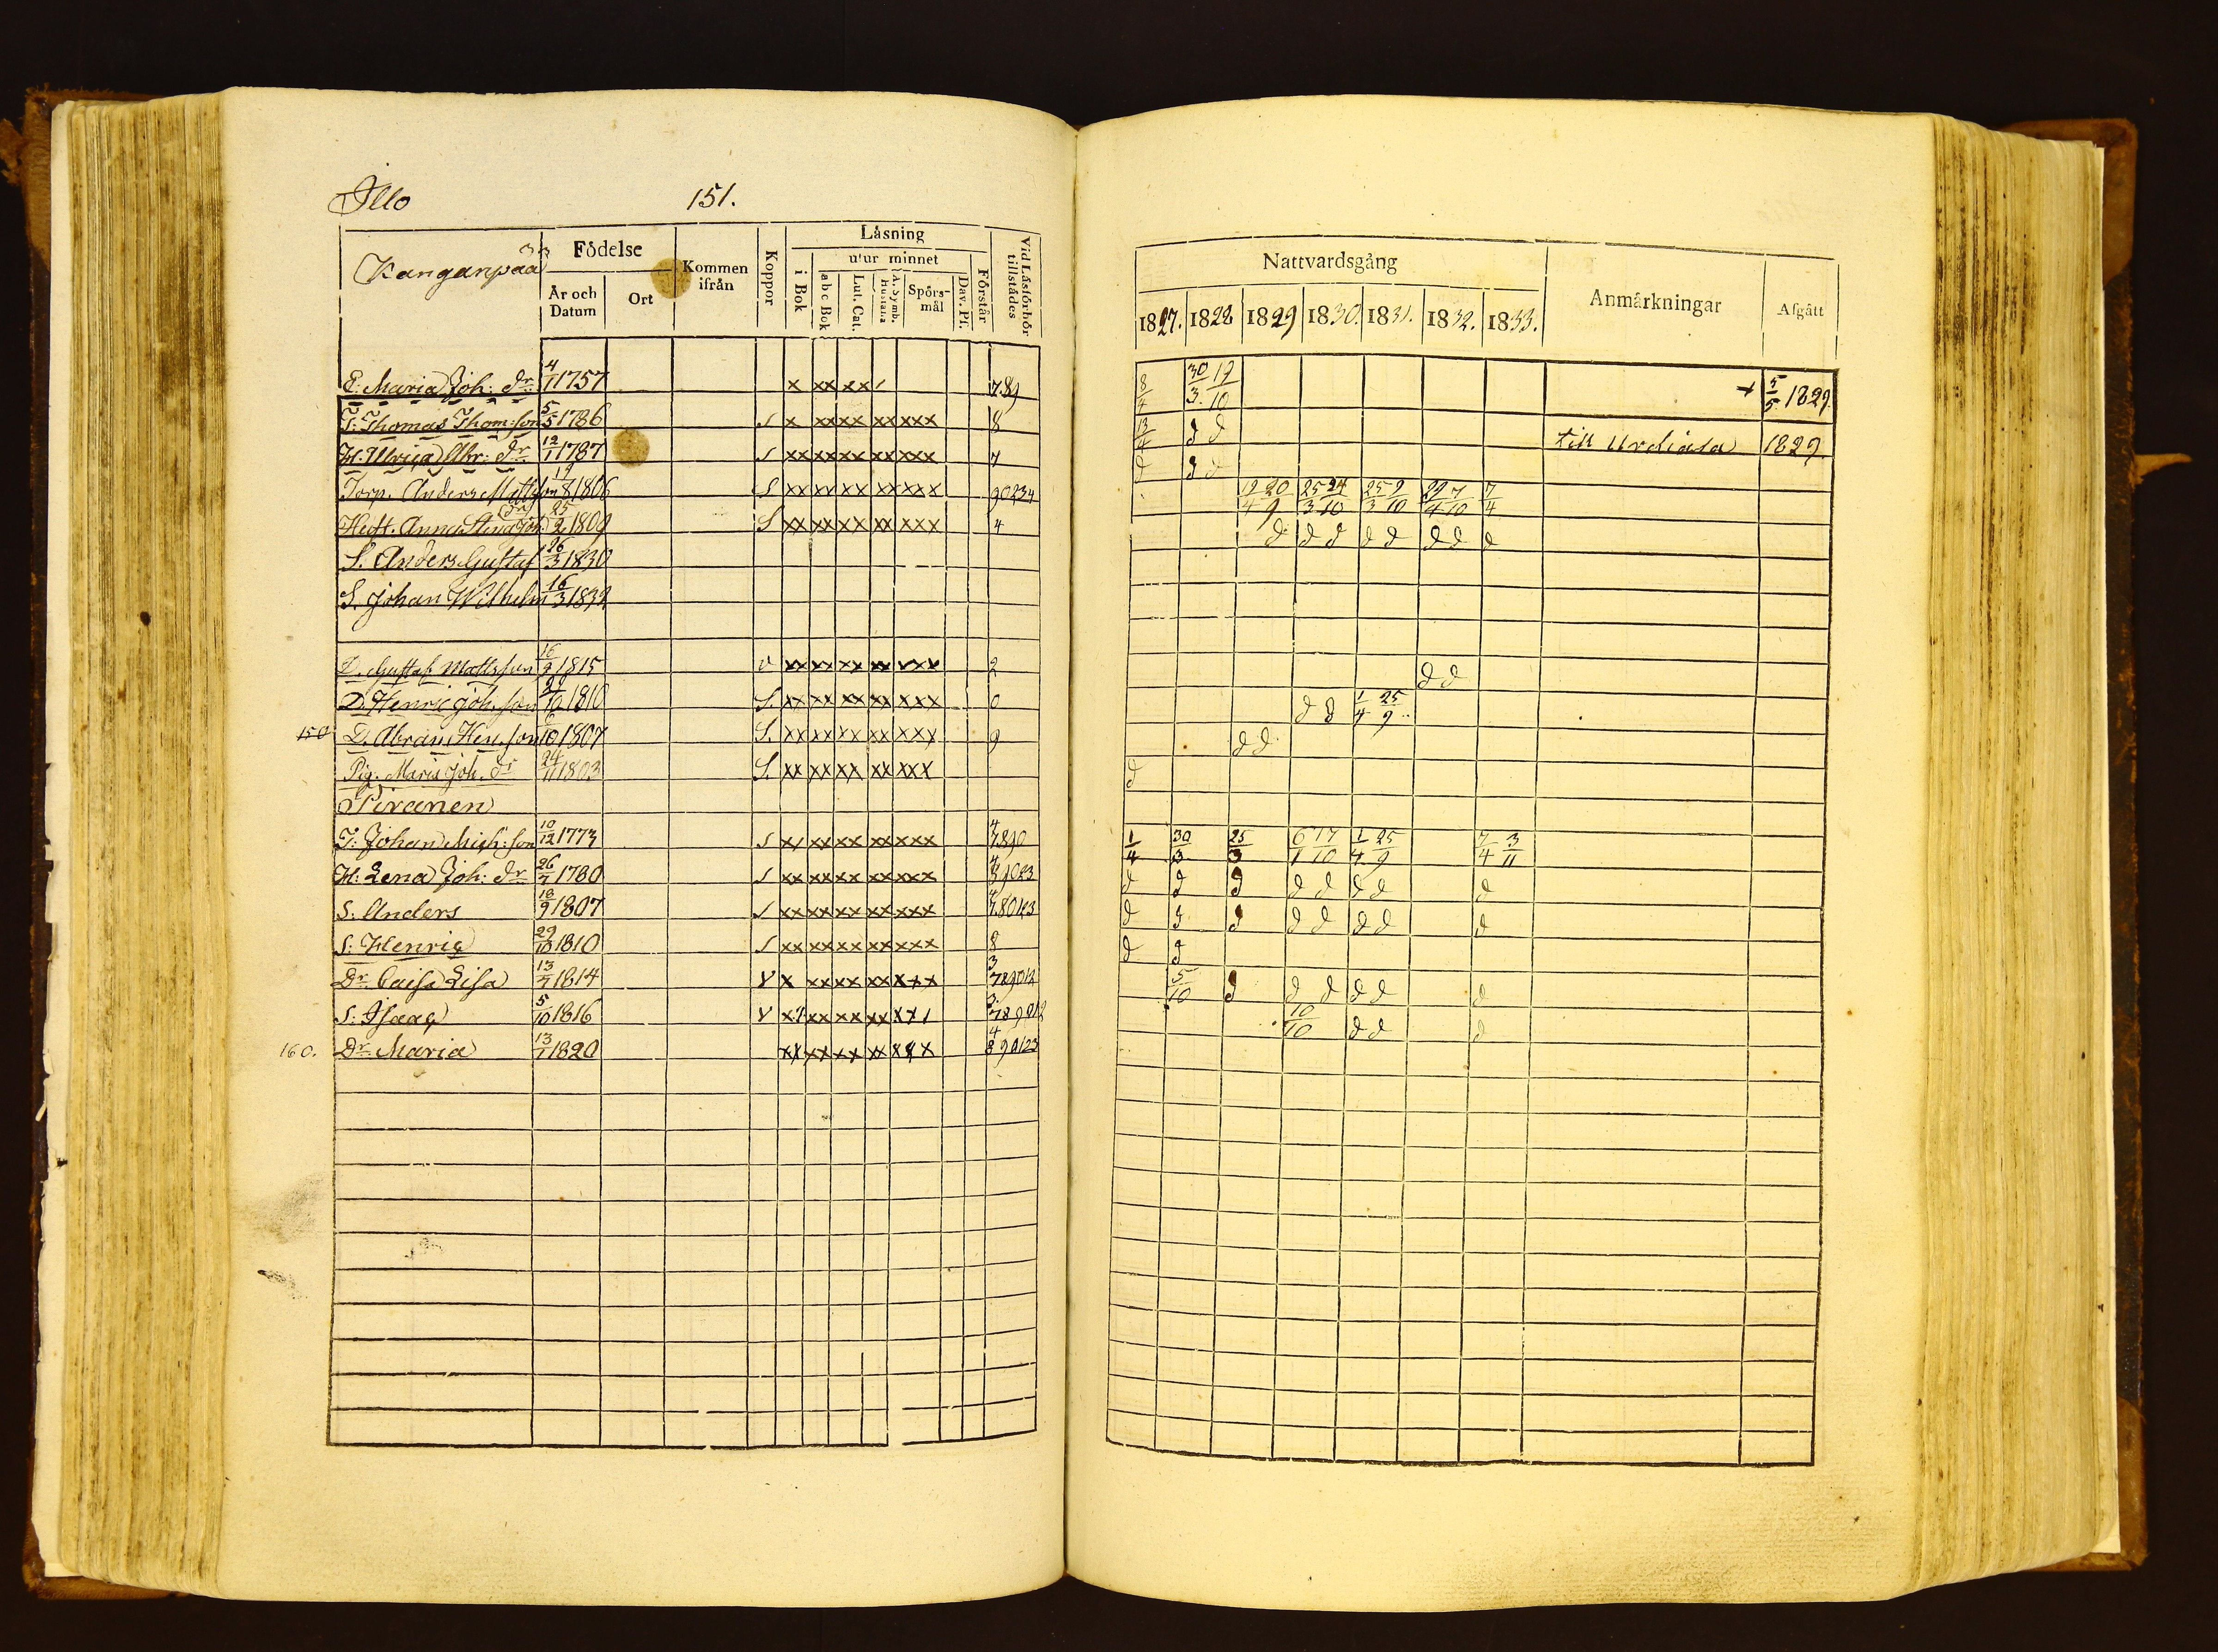 Illo 151.
Kanganpää Födelse Kommen ifrån Koppor Läsning Vid Läsförhör tillstädes
utur minnet
År och Datum Ort i Bok abc Bok Lut. Cat. Spörs-mål Dav. Ps. Förstår
E. Maria Joh: dr 4/1 1757 x xx xx / 789
T: Thomas Thom:son 5/5 1786 s x xx xx xx xxx 8
H. Ulrica Abr: dr 12/1 1787 s xx xx xx xx xxx 7
Torp. Anders Mattsson 19/8 1806 S xx xx xx xx xxx 90234
Hust. Anna Stina Joh. dr 25/2 1809 S xx xx xx xx xxx 4
S. Anders Gustaf 26/3 1830
S. Johan Wilhelm 16/3 1832
D. Gustaf Mattsson 16/9 1815 v xx xx xx xx xxx 2
D. Henric Joh. son 29/10 1810 S. xx xx xx xx xxx 0
150 D. Abram Hen. son 6/10 1807 S. xx xx xx xx xxx 9
Pig. Maria Joh. dr 24/11 1803 S. xx xx xx xx xxx
Piranen
T: Johan Mich: son 10/12 1773 s x/ xx xx xx xxx 4 7890
H: Lena Joh: dr 26/7 1780 s xx xx xx xx xxx 4 89023
S: Anders 18/9 1807 s xx xx xx xx xxx 4 780123
S: Henric 29/10 1810 s xx xx xx xx xxx 8
Dr Caisa Lisa 13/7 1814 v x xx xx xx xxx 3 789012
S: Isaac 5/10 1816 v xx xx xx xx xx/ 3. 789012
160. Dr Maria 13/1 1820 xx xx xx xx xxx 4 890123
Nattvardsgång Anmärkningar Afgått
1827. 1828 1829 1830. 1831. 1832. 1833.
8/4 30/3. 19/10 + 5/5 1829.
13/4 d d till Urdiala 1829.
d d d
19/4 20/9 25/3 24/10 25/3 9/10 29/4 7/10 7/4
d d d d d d d d
d d
d d 1/4 25/9
d d
d
1/4 30/3 25/3 6/1 17/10 1/4 25/9 7/4 3/11
d d d d d d d d
d d d d d d d d
d d
5/10 d d d d d d
10/10 d d d